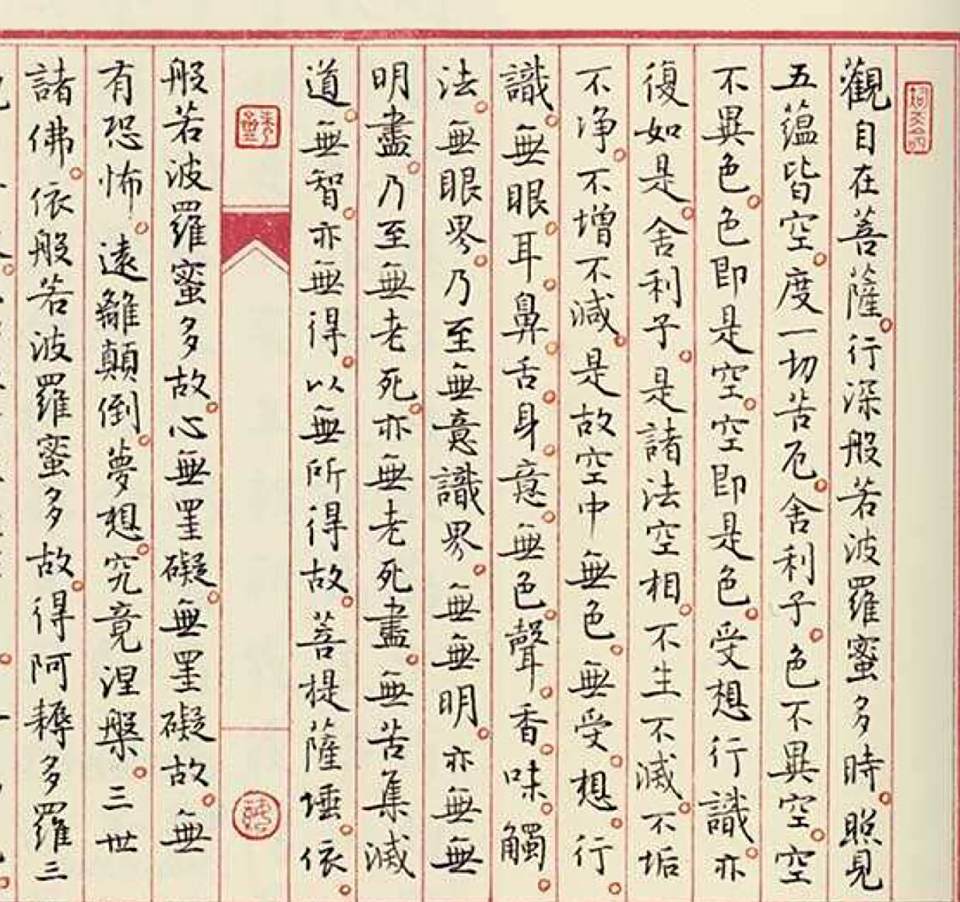 觀自在菩薩。行深般若波羅蜜多時。照見
五蘊皆空。度一切苦厄。舍利子。色不異空。空
不異色。色即是空。空即是色。受想行識。亦
復如是。舍利子。是諸法空相。不生不滅。不垢
不淨。不增不減。是故空中無色。無受。想。行。
識。無眼。耳。鼻。舌。身。意。無色。聲。香。味。觸。
法。無眼界。乃至無意識界。無無明。亦無無
明盡。乃至無老死。亦無老死盡。無苦集滅
道。無智。亦無得。以無所得故。菩提薩埵。依。
般若波羅蜜多故。心無罣礙。無罣礙故。無
有恐怖。遠離顛倒。夢想。究竟涅槃。三世
諸佛。依般若波羅蜜多故。得阿耨多羅三